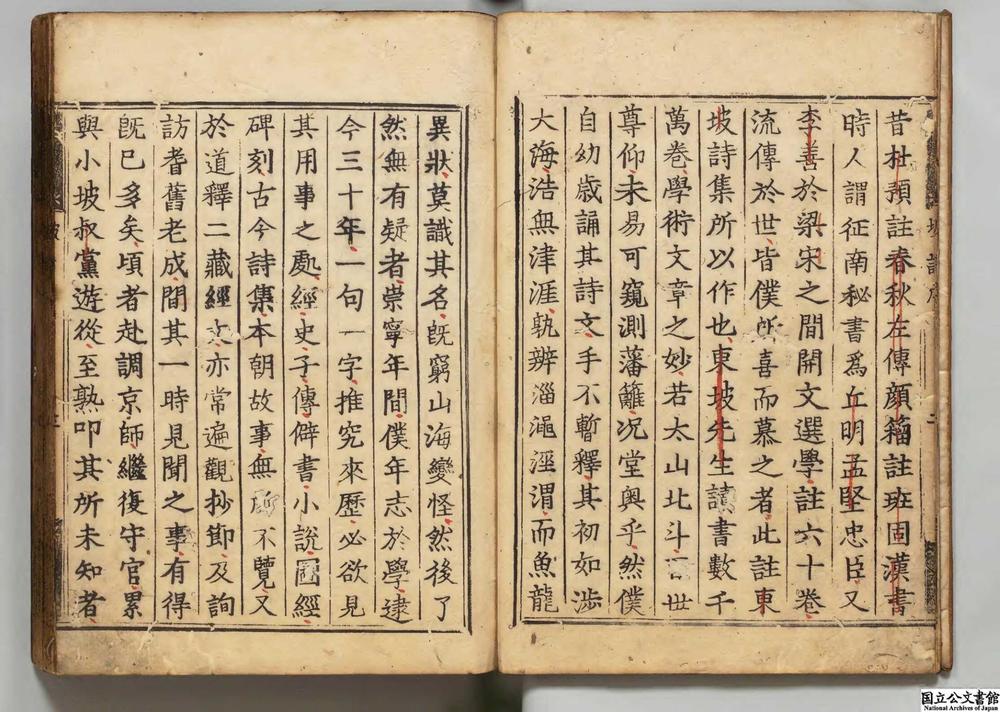 昔杜預註春秋左傳顔籀註班固漢書
時人謂征南秘書爲丘明孟堅忠臣又
李善於梁宋之間開文選學註六十卷
流傳於世皆僕所喜而慕之者此註東
坡詩集所以作也東坡先生讀書數千
萬卷學術文章之妙若太山北斗百世
尊仰未易可窺測藩籬况堂奥乎然僕
自幼歳誦其詩文手不暫釋其初如渉
大海浩無津涯孰辨淄澠涇渭而魚龍
異狀莫識其名旣窮山海變怪然後了
然無有疑者崇寧年間僕年志於學逮
今三十年一句一字推究來歷必欲見
其用事之處經史子傳僻書小說圖經
碑刻古今詩集本朝故事無所不覽又
於道釋二藏經文亦常遍觀抄節及詢
訪耆舊老成間其一時見聞之事有得
旣已多矣頃者赴調京師繼復守官累
與小坡叔黨遊從至熟叩其所未知者
坡詩序
二
國立公文書館
National Archives of Japan